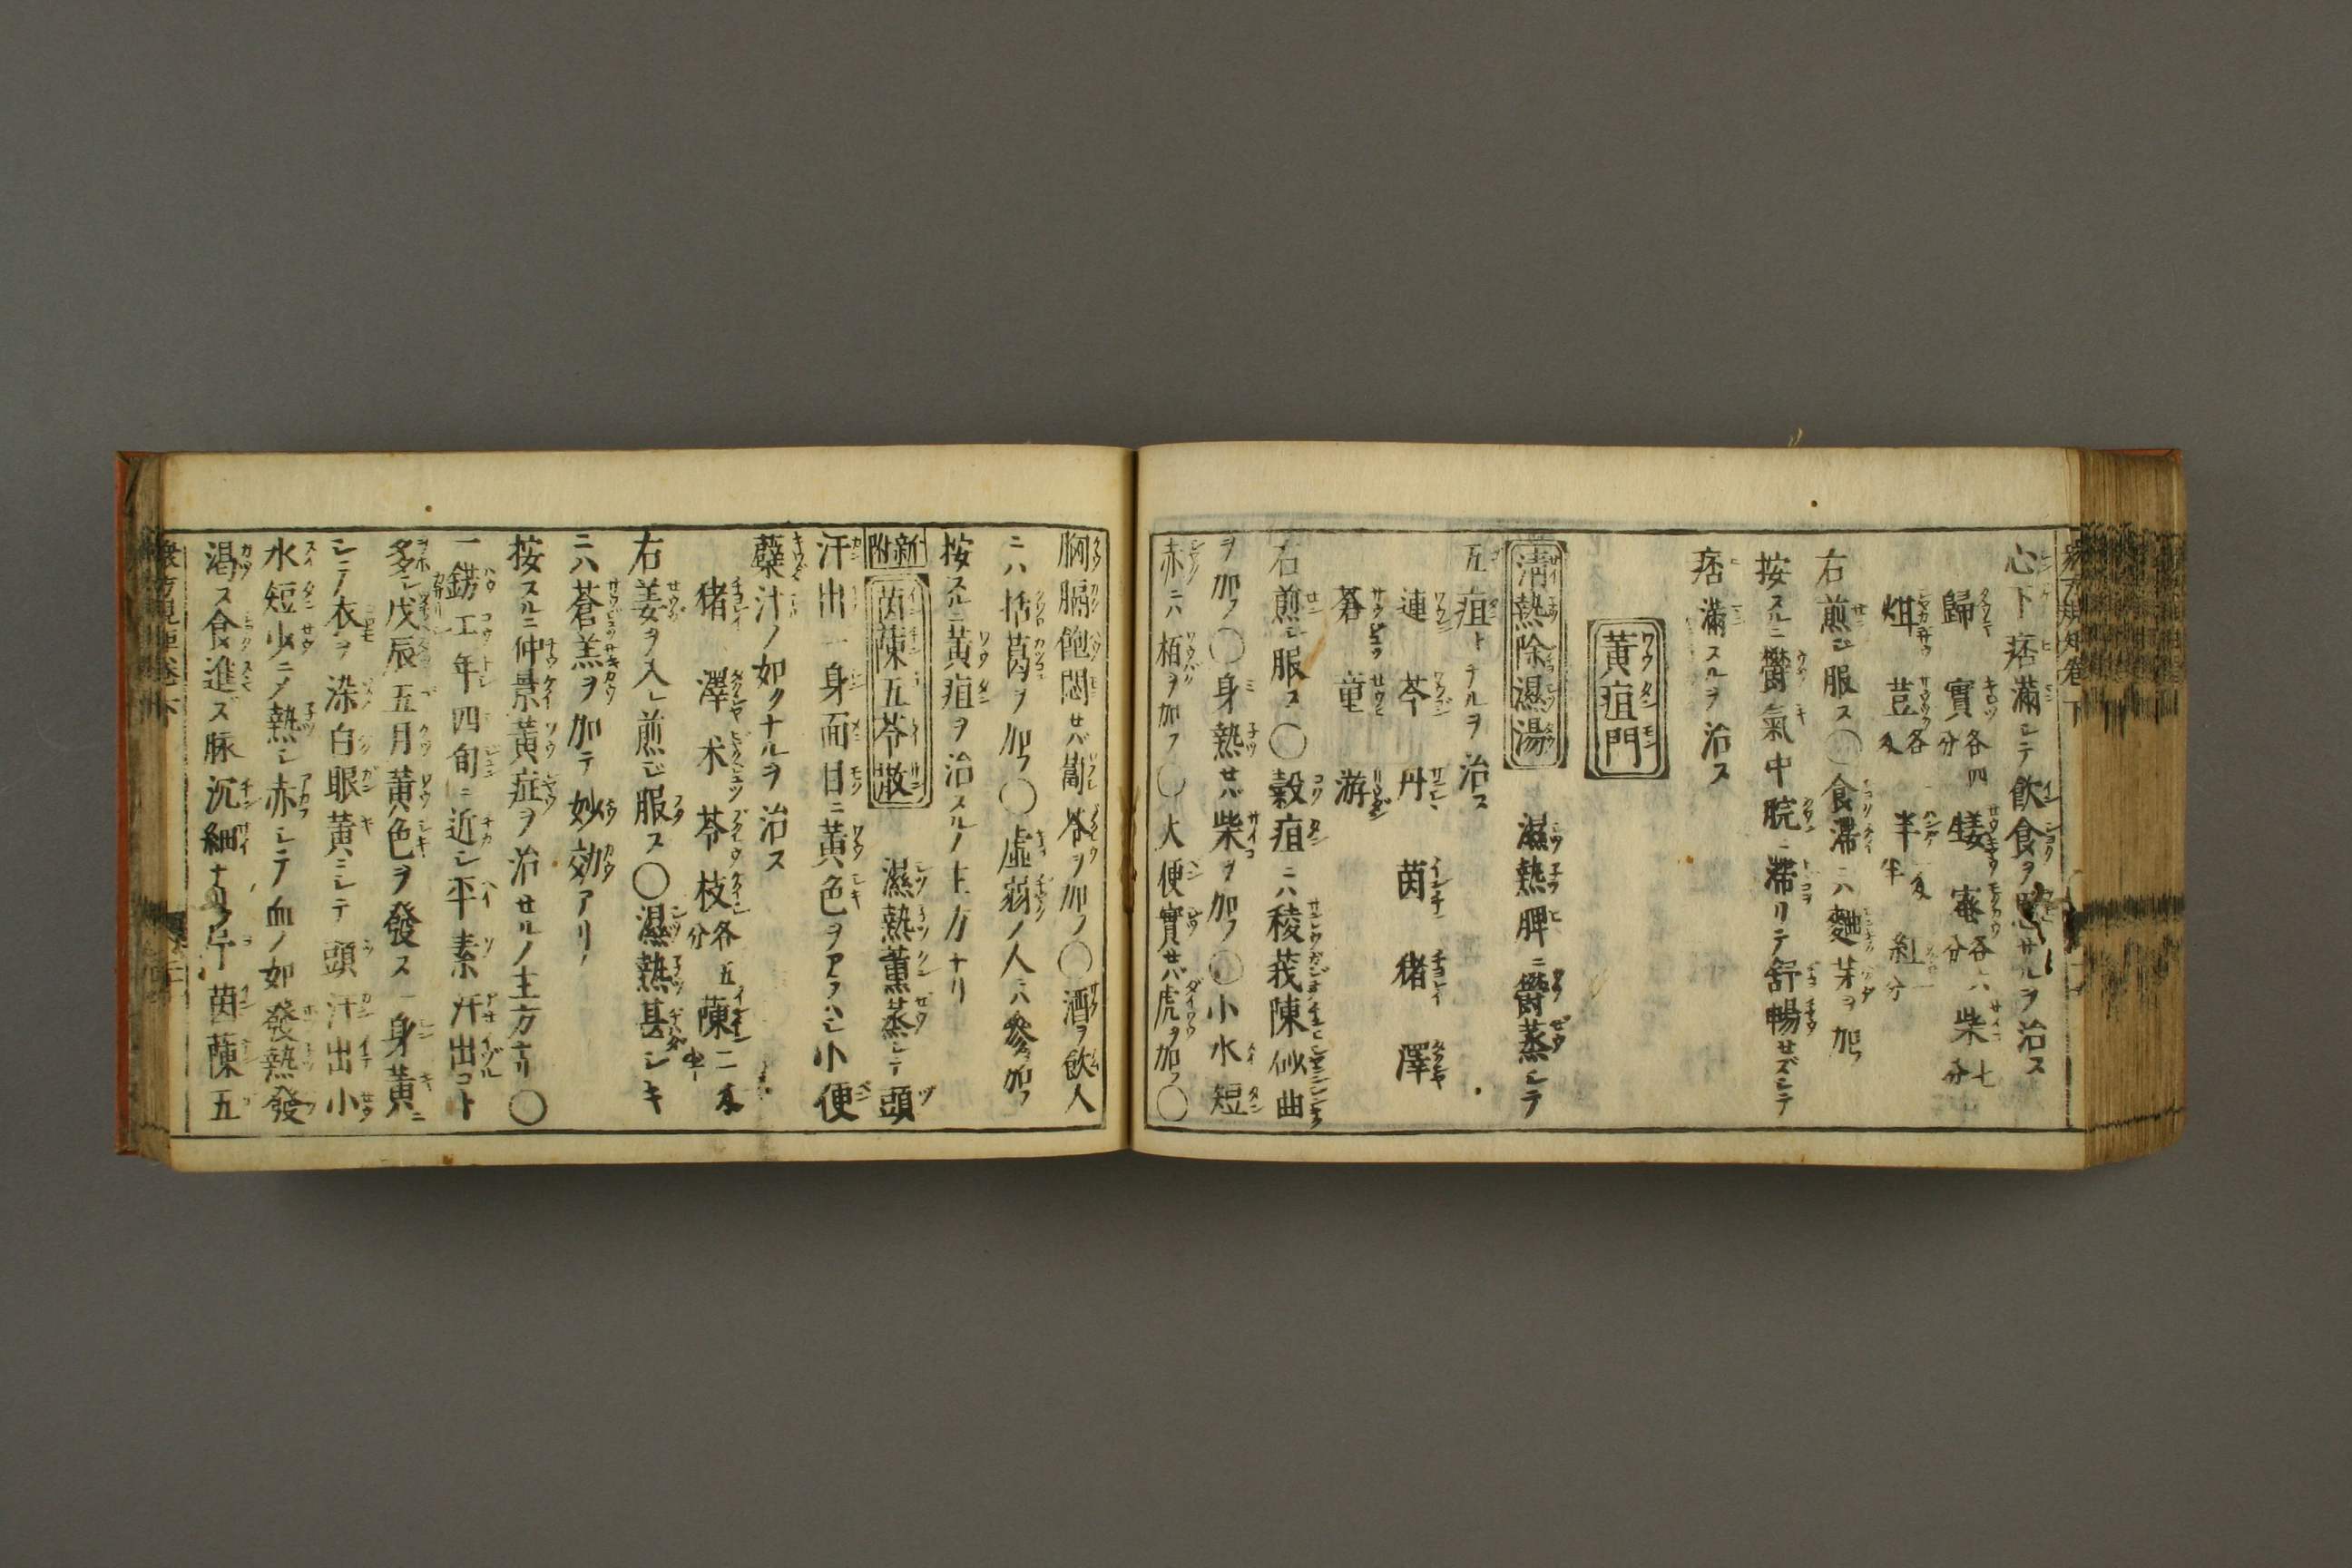 心下痞滿シテ飲食ヲサルヲ治ス
歸 實各四分 蜜各六分 柴七分
荳各 半 紅
右煎ジ服ス〇食滯ニハ麯芽ヲ加フ
按スルニ鬱氣中脘ニ滯リテ舒暢セズシテ
痞滿スルヲ治ス
黃疸門
清熱除濕湯 濕熱脾ニ鬱蒸シテ
五疸トナルヲ治ス
連 芩 丹 茵 猪 澤
蒼 童 游
右煎ジ服ス〇穀疸ニハ稜莪陳似曲
ヲ加フ〇身熱セバ柴ヲ加フ〇小水短
赤ニハ栢ヲ加フ〇大便實セバ虎ヲ加フ〇
胸膈飽悶セバ蔔苓ヲ加フ〇酒ヲ飲人
ニハ括葛ヲ加フ〇虛弱ノ人ニハ參ヲ加フ
按スルニ黃疸ヲ治スルノ主方ナリ
新附 茵蔯五苓散 濕熱薰蒸シテ頭
汗出一身面目ニ黃色ヲアラハシ小便
蘗汁ノ如クナルヲ治ス
猪 澤 朮 苓 枝各五分 蔯二
右姜ヲ入レ煎ジ服ス〇濕熱甚シキ
ニハ蒼羔ヲ加テ妙効アリ
按スルニ仲景黃症ヲ治セルノ主方ナリ〇
一錺工年四旬ニ近シ平素汗出コト
多シ戊辰五月黃色ヲ發ス一身黃ニ
シテ衣ヲ染白眼黃ミシテ頭汗出小
水短少ニシテ熱シ赤シテ血ノ如發熱發
渴ス食進ズ脉沉細ナリ予茵蔯五